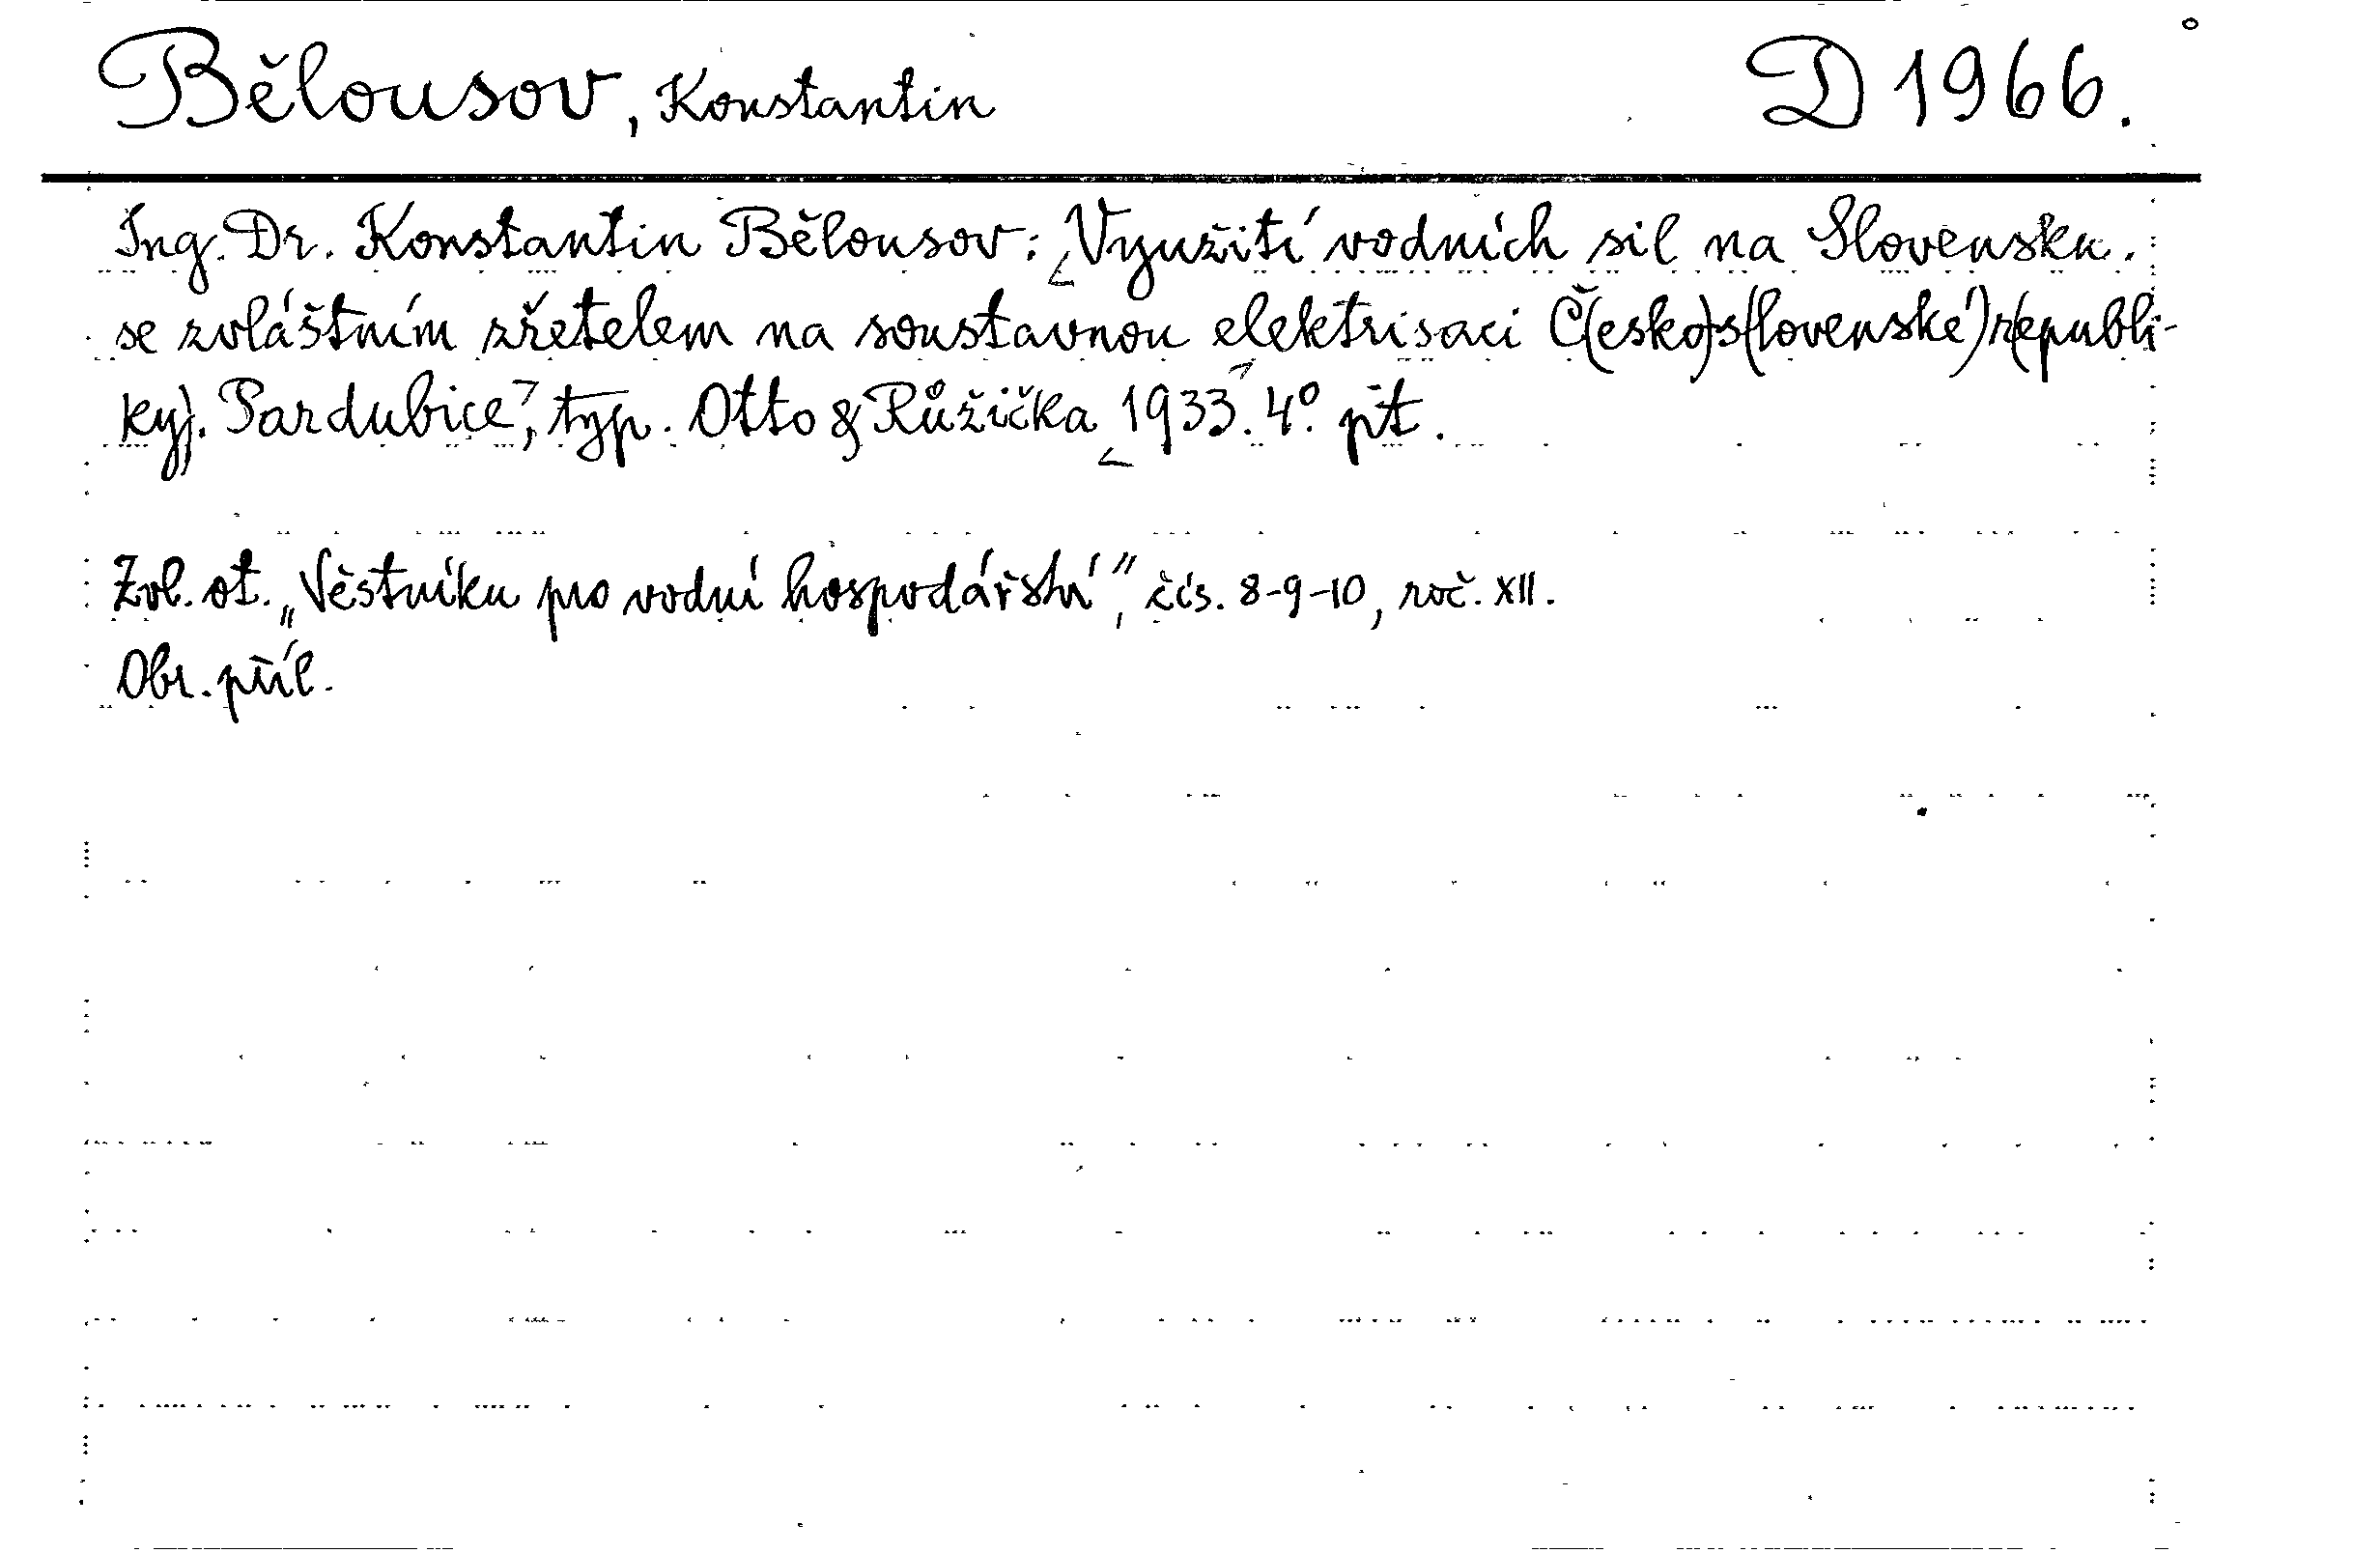 Bělousov, Konstantin D 1966.
Ing. Dr. Konstantin Bělousov: Využití vodních sil na Slovensku.
se zvláštním zřetelem na soustavnou elektrisaci Č(esko)s(lovenské) r(epubli-
ky). Pardubice, typ. Otto & Růžička 1933. 4° přt.
Zvl. ot. „Věstníku pro vodní hospodářství", čís. 8-9-10, roč. XII.
Obr. příl.